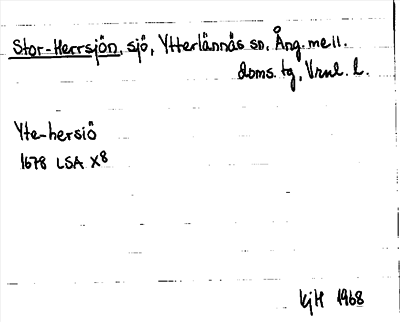 Stor-Herrsjön, sjö, Ytterlännäs sn, Ång. mell.
doms. tg, Vrnl. l.
Yte-hersiö
1678 LSA X8
KjH 1968